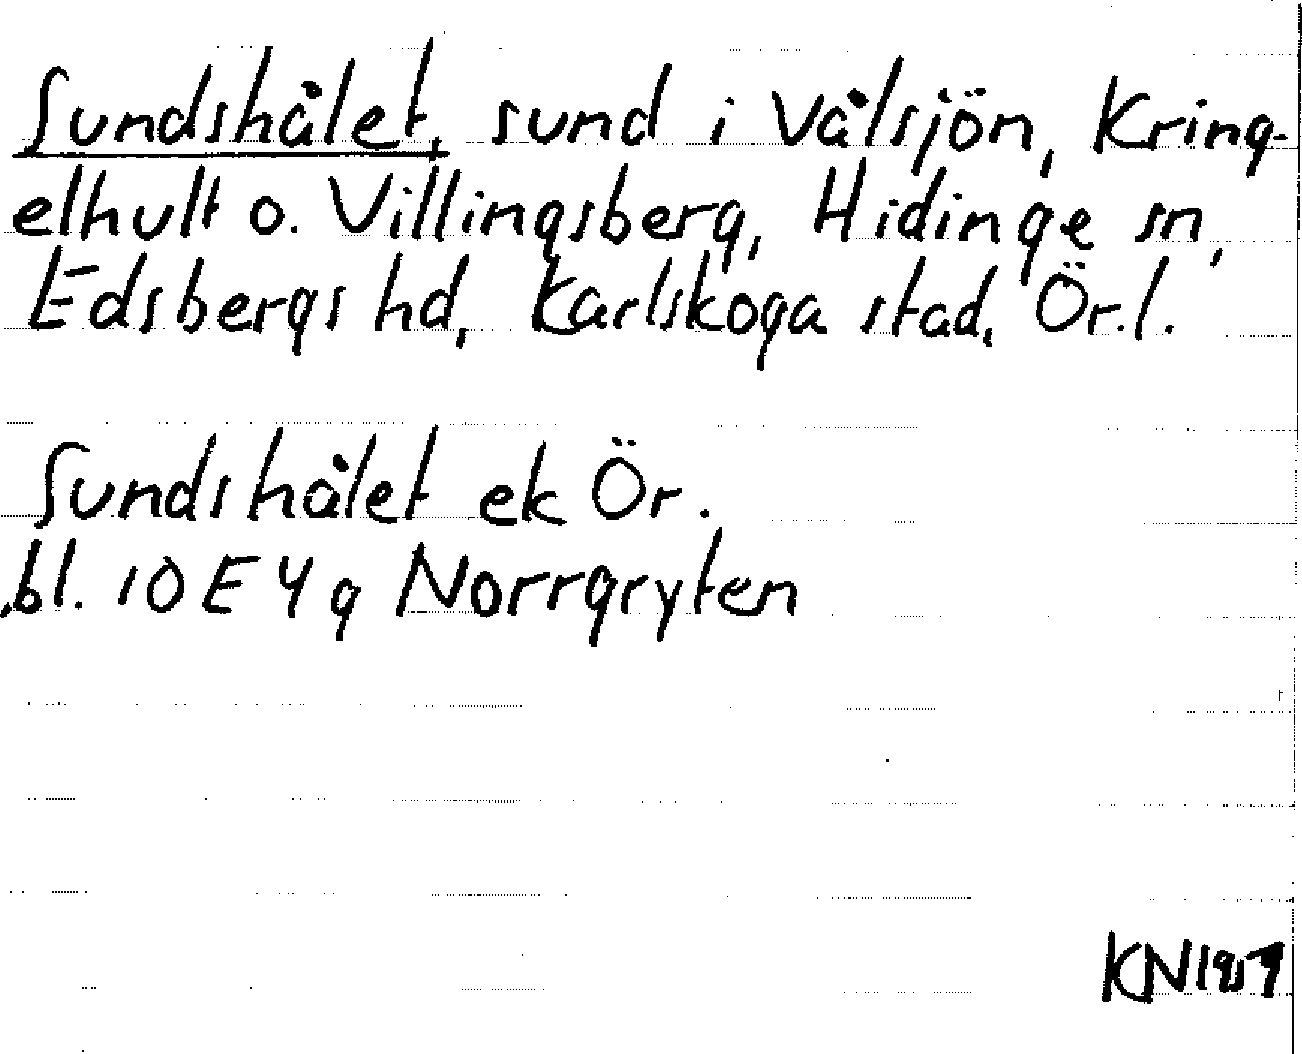 Sundshålet, sund i Vålsjön, Kring-
elhult o. Villingsberg, Hidinge sn,
Edsbergs hd, Karlskoga stad, Ör.l.
Sundshålet ek Ör.
bl. 10 E 4 g Norrgryten